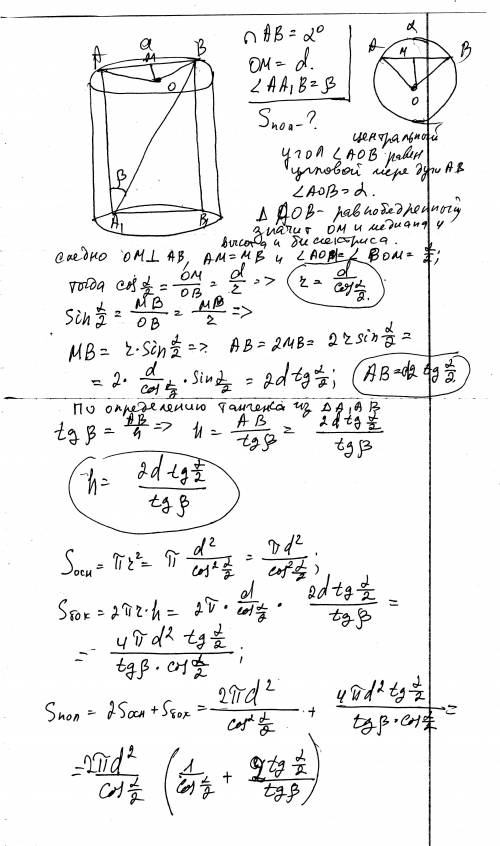 ∩AB = α°
OM = d.
∠AA₁B = β
Sпол - ?
A a M B O
β
A₁ B₁
α
A M B
O
центральный
угол ∠AOB равен
угловой мере дуги AB
∠AOB = α.
Δ AOB - равнобедренный,
значит OM и медиана и
высота и биссектриса.
следно OM⊥AB, AM=MB и ∠AOM=∠BOM = α/2;
тогда cos α/2 = OM/OB = d/r => r = d/cos α/2.
Sin α/2 = MB/OB = MB/r =>
MB = r·Sin α/2 => AB = 2MB = 2r sin α/2 =
= 2· d/cos α/2 · Sin α/2 = 2d tg α/2; AB = d2 tg α/2
По определению тангенса из ΔA₁AB
tg β = AB/h => h = AB/tg β = 2d tg α/2 / tg β
h = 2d tg α/2 / tg β
Sосн = πr² = π d²/cos² α/2 = πd²/cos² α/2;
Sбок = 2πr·h = 2π· d/cos α/2 · 2d tg α/2 / tg β =
= 4πd² tg α/2 / tg β · cos α/2;
Sпол = 2Sосн + Sбок = 2πd²/cos² α/2 + 4πd² tg α/2 / tg β · cos α/2 =
= 2πd²/cos α/2 (1/cos α/2 + 2 tg α/2 / tg β)